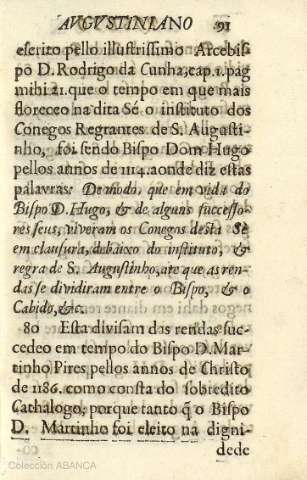 AVGVSTINIANO 91
eſcrito pello illuſtriſſimo Arcebiſ-
po D. Rodrigo da Cunha, cap. 1. pag
mihi 21. que o tempo em que mais
floreceo na dita Sé o inſtituto dos
Conegos Regrantes de S. Auguſti-
nho, foi ſendo Biſpo Dom Hugo
pellos annos de 1114. aonde diz eſtas
palavras: De modo, que em vida do
Biſpo D. Hugo, & de alguns ſucceſſo-
res ſeus, viveram os Conegos deſta Sé
em clauſura, debaixo do inſtituto, &
regra de S. Auguſtinho, ate que as ren-
das ſe dividiram entre o Biſpo, & o
Cabido, &c.
80 Eſta diviſam das rendas ſuc-
cedeo em tempo do Biſpo D. Mar-
tinho Pires, pellos annos de Chriſto
de 1186. como conſta do ſobredito
Cathâlogo; porque tanto q̃ o Biſpo
D. Martinho foi eleito na digni-
dede
Colección ABANCA